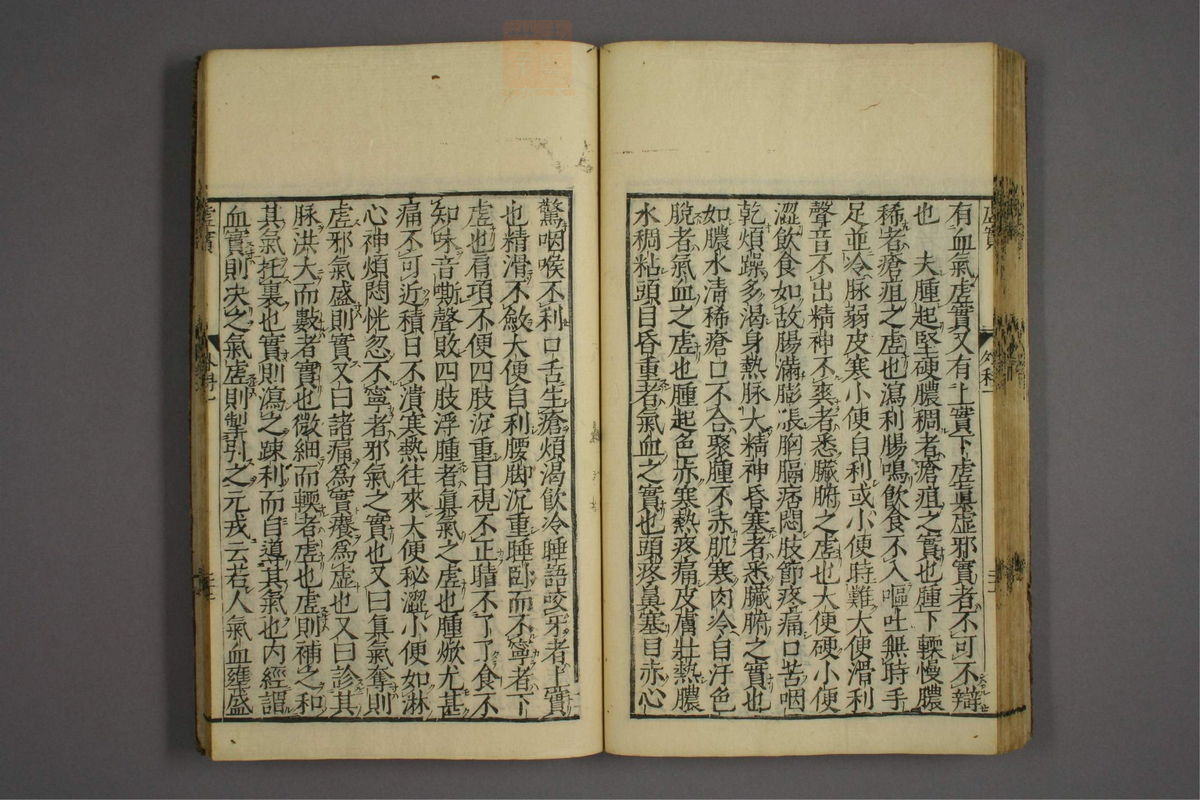 有血氣虛實又有上實下虛眞虛邪實者不可不辯
也　夫腫起堅硬膿稠者瘡疽之實也腫下輭慢膿
稀者瘡疽之虛也瀉利腸鳴飲食不入嘔吐無時手
足並冷脉弱皮寒小便自利或小便時難大便滑利
聲音不出精神不爽者悉臟腑之虛也大便硬小便
澀飲食如故腸滿膨漲胸膈痞悶肢節疼痛口苦咽
乾煩躁多渴身熱脉大精神昏塞者悉臟腑之實也
如膿水淸稀瘡口不合聚腫不赤肌寒肉冷自汗色
脫者氣血之虛也腫起色赤寒熱疼痛皮膚壯熱膿
水稠粘頭目昏重者氣血之實也頭疼鼻塞目赤心
驚咽喉不利口舌生瘡煩渴飲冷睡語咬牙者上實
也精滑不斂大便自利腰脚沉重睡臥而不寧者下
虛也肩項不便四肢沉重目視不正睛不了了食不
知味音嘶聲敗四肢浮腫者眞氣之虛也腫焮尤甚
痛不可近積日不潰寒熱往來大便秘澀小便如淋
心神煩悶恍忽不寧者邪氣之實也又曰眞氣奪則
虛邪氣盛則實又曰諸痛爲實癢爲虛也又曰診其
脉洪大而數者實也微細而輭者虛也虛則補之和
其氣托裏也實則瀉之踈利而自導其氣也内經謂
血實則决之氣虛則掣引之元戎云若人氣血壅盛
虛實
外科一